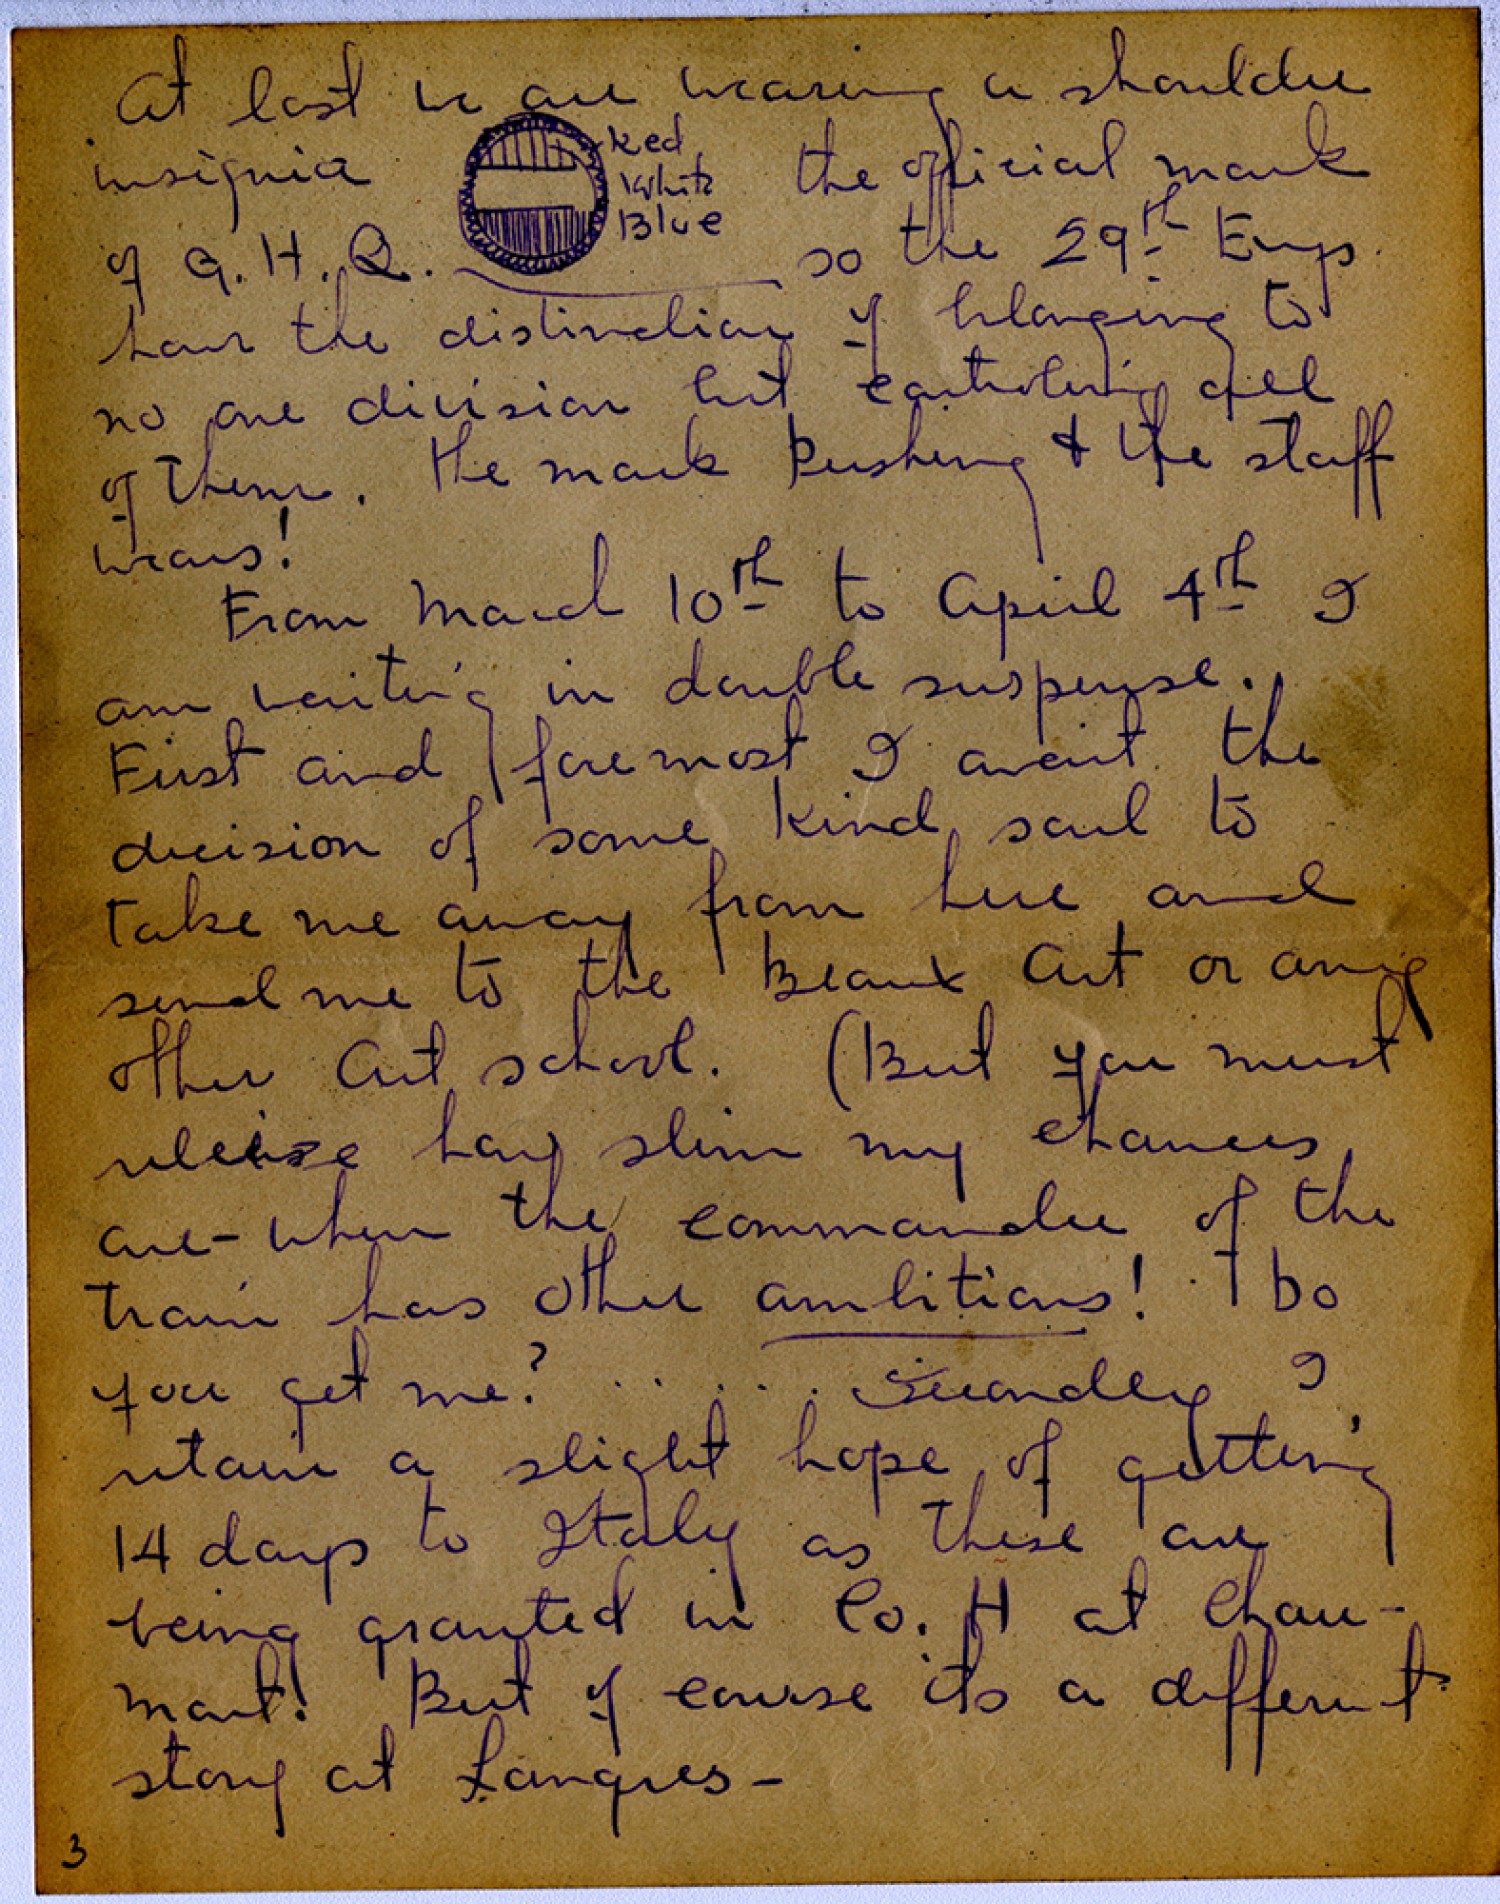 At last we are wearing a shoulder
insignia
Red
White
Blue
the official mark
of G.H.Q. so the 29th Engs.
have the distinction of belonging to
no one division but controling all
of them. The mark Pershing & the staff
wears!
From March 10th to April 4th I
am waiting in double suspense.
First and foremost I await the
decision of some kind soul to
take me away from here and
send me to the Beaux Art or any
other Art school. (But you must
releize how slim my chances
are - when the commander of the
train has other ambitions! Do
you get me? . . . . . Secondly I
retain a slight hope of getting
14 days to Italy as these are
being granted in Co. H at Chau-
mont! But of course its a different
story at Langres -
3